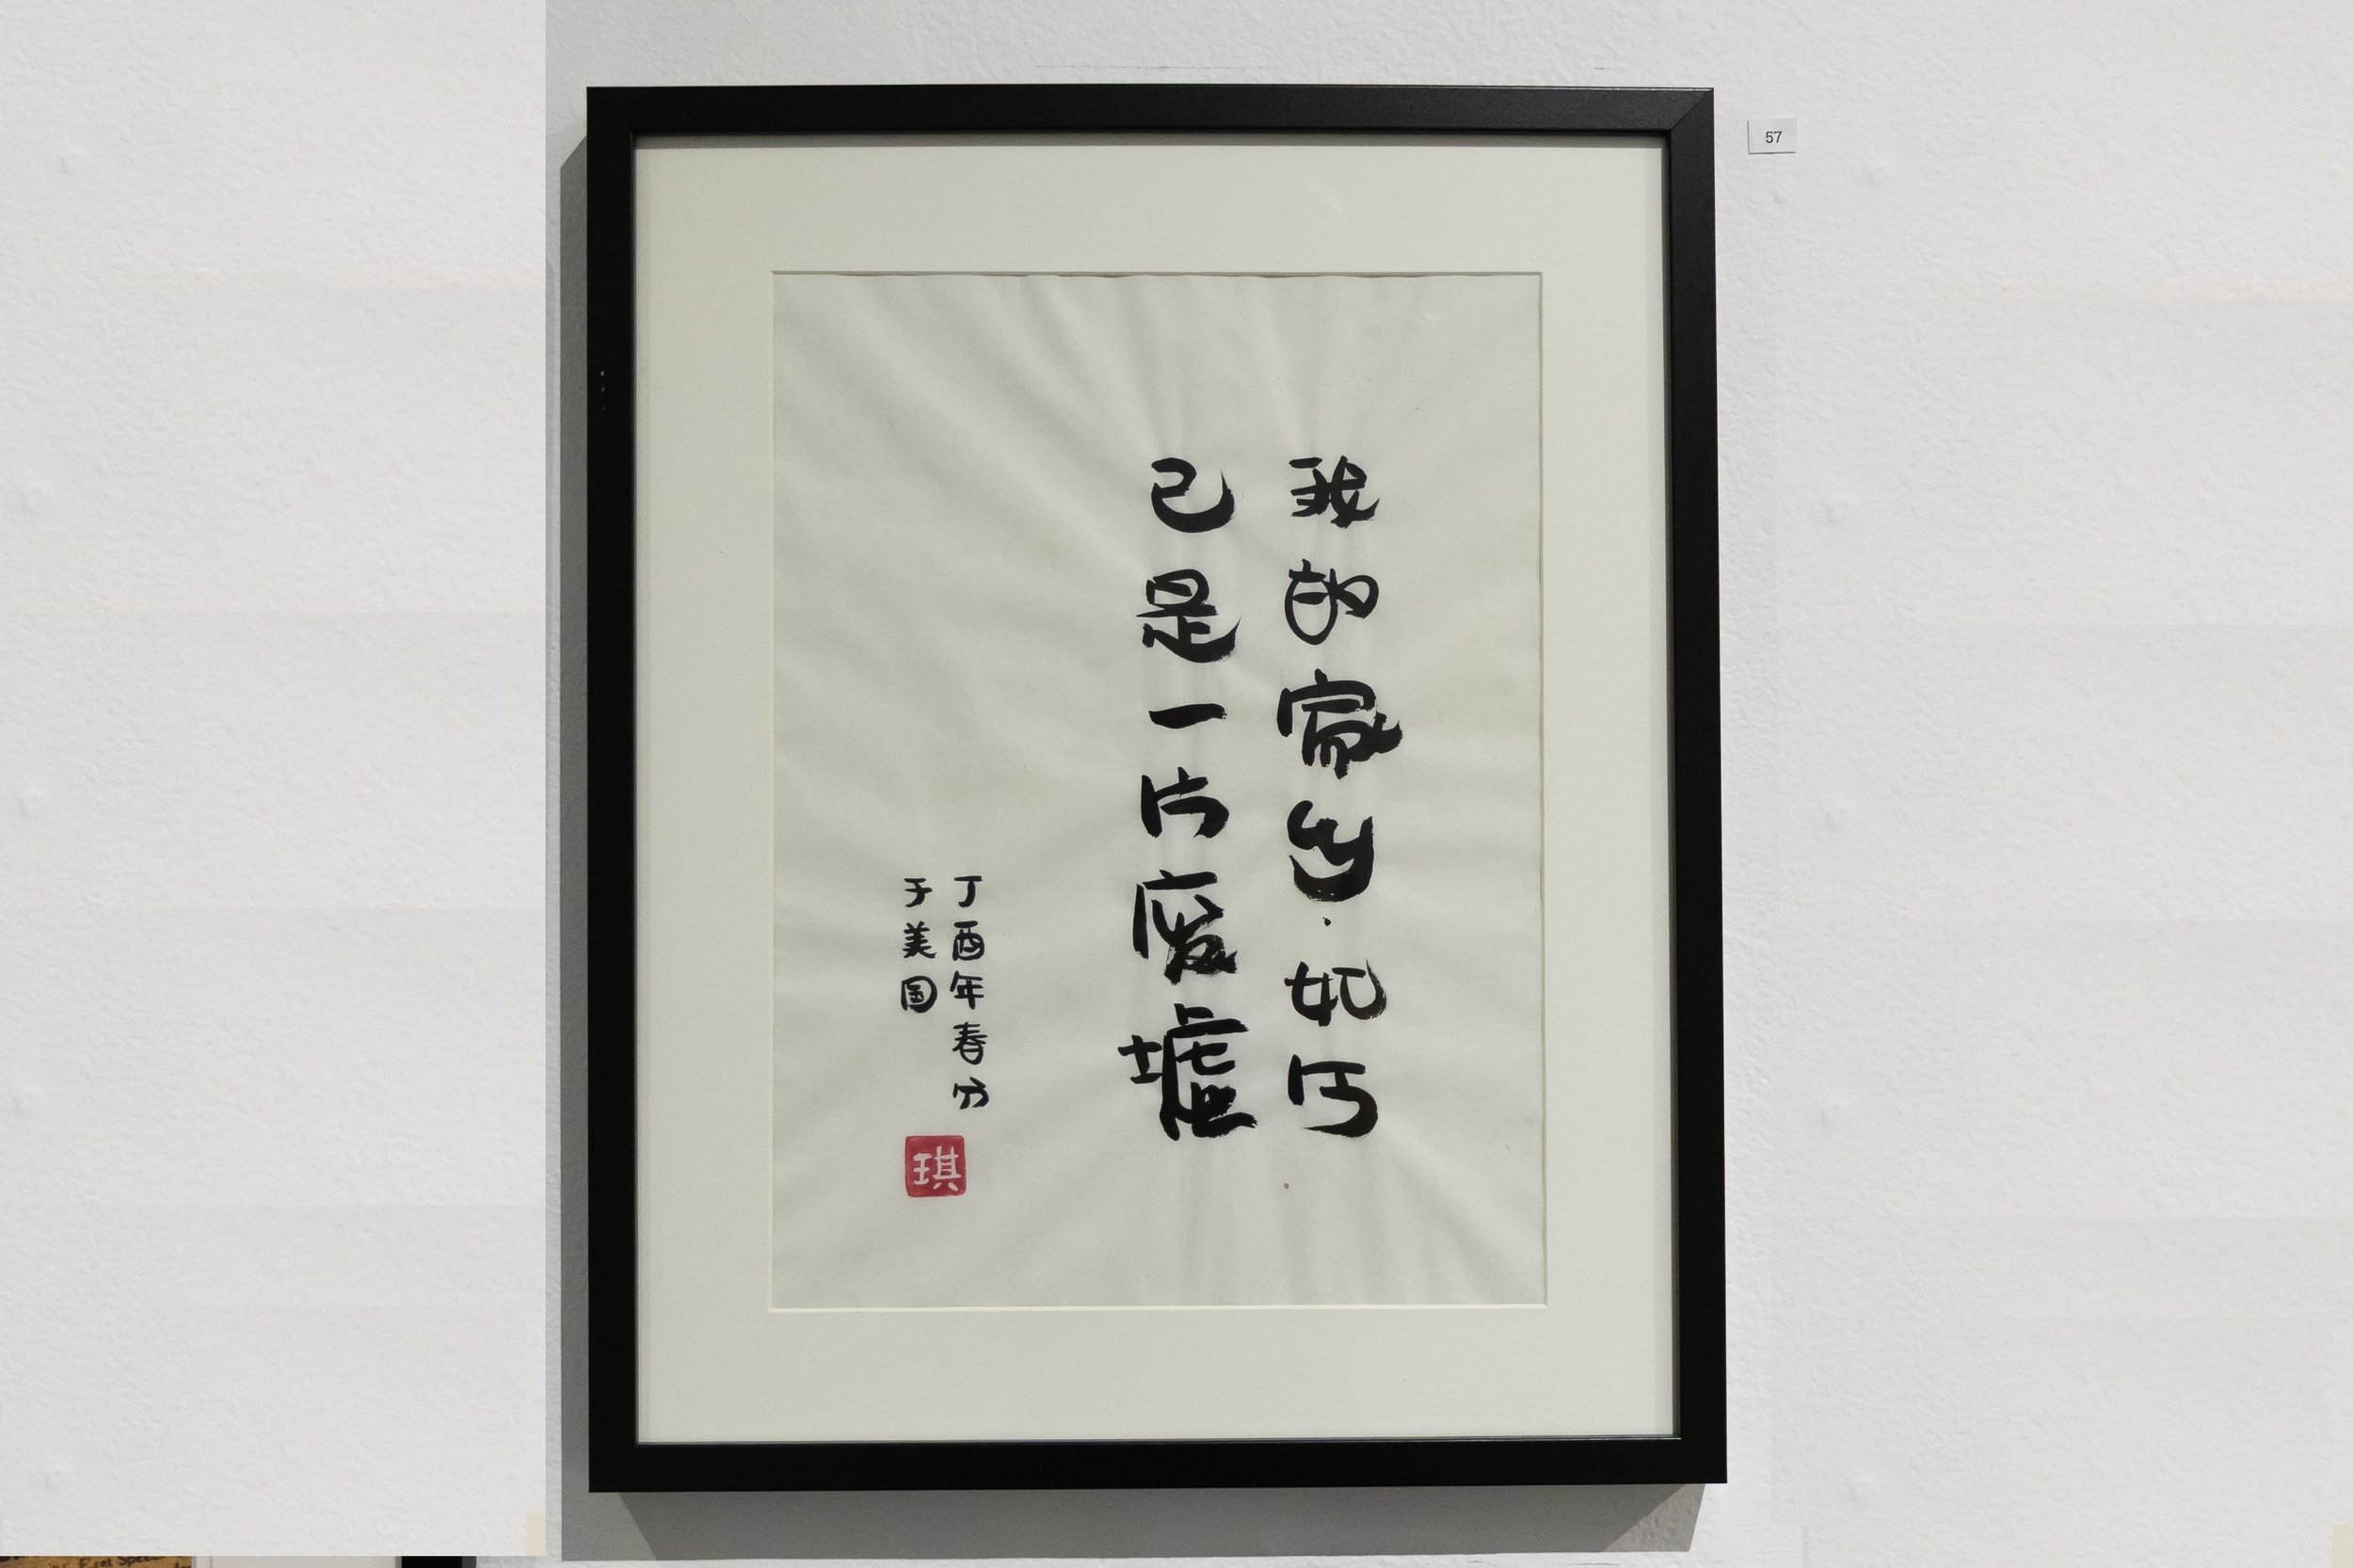 57
我的家
已是一片废墟
丁酉年春分
于美国
琪